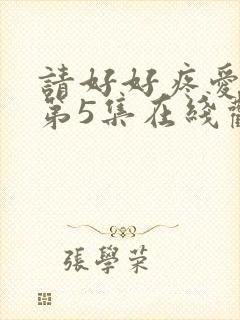 請好好疼愛
第5集在綫
張學荣